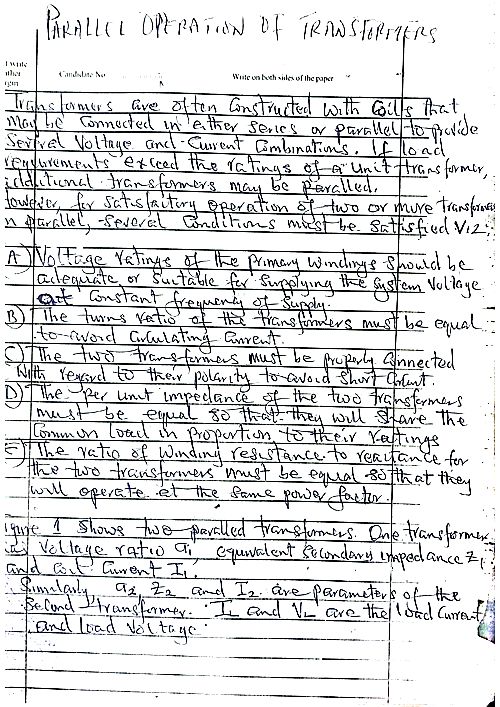 PARALLEL OPERATION OF TRANSFORMERS
t write
ither
rgin
Candidate No
Write on both sides of the paper
Transformers are often Constructed with Coils that
may be Connected in either series or parallel to provide
Several Voltage and Current Combinations. If load
requirements exceed the ratings of a unit transformer,
additional transformers may be paralled.
However, for satisfactory operation of two or more transformers
in parallel, several Conditions must be satisfied Viz:
A) Voltage ratings of the primary windings should be
adequate or Suitable for supplying the system Voltage
at Constant frequency of Supply.
B) The turns ratio of the transformers must be equal
to avoid Circulating Current.
C) The two transformers must be properly Connected
With regard to their polarity to avoid Short Circuit.
D) The per unit impedance of the two transformers
must be equal so that they will share the
Common load in proportion to their ratings
E) The ratio of winding resistance to reactance for
the two transformers must be equal so that they
will operate at the same power factor.
igure 1 Shows two paralled transformers. One transformer
as Voltage ratio a1, equivalent Secondary impedance Z1
and Current I1.
Similarly a2 Z2 and I2 are parameters of the
Second transformer. IL and VL are the load Current
and load Voltage.